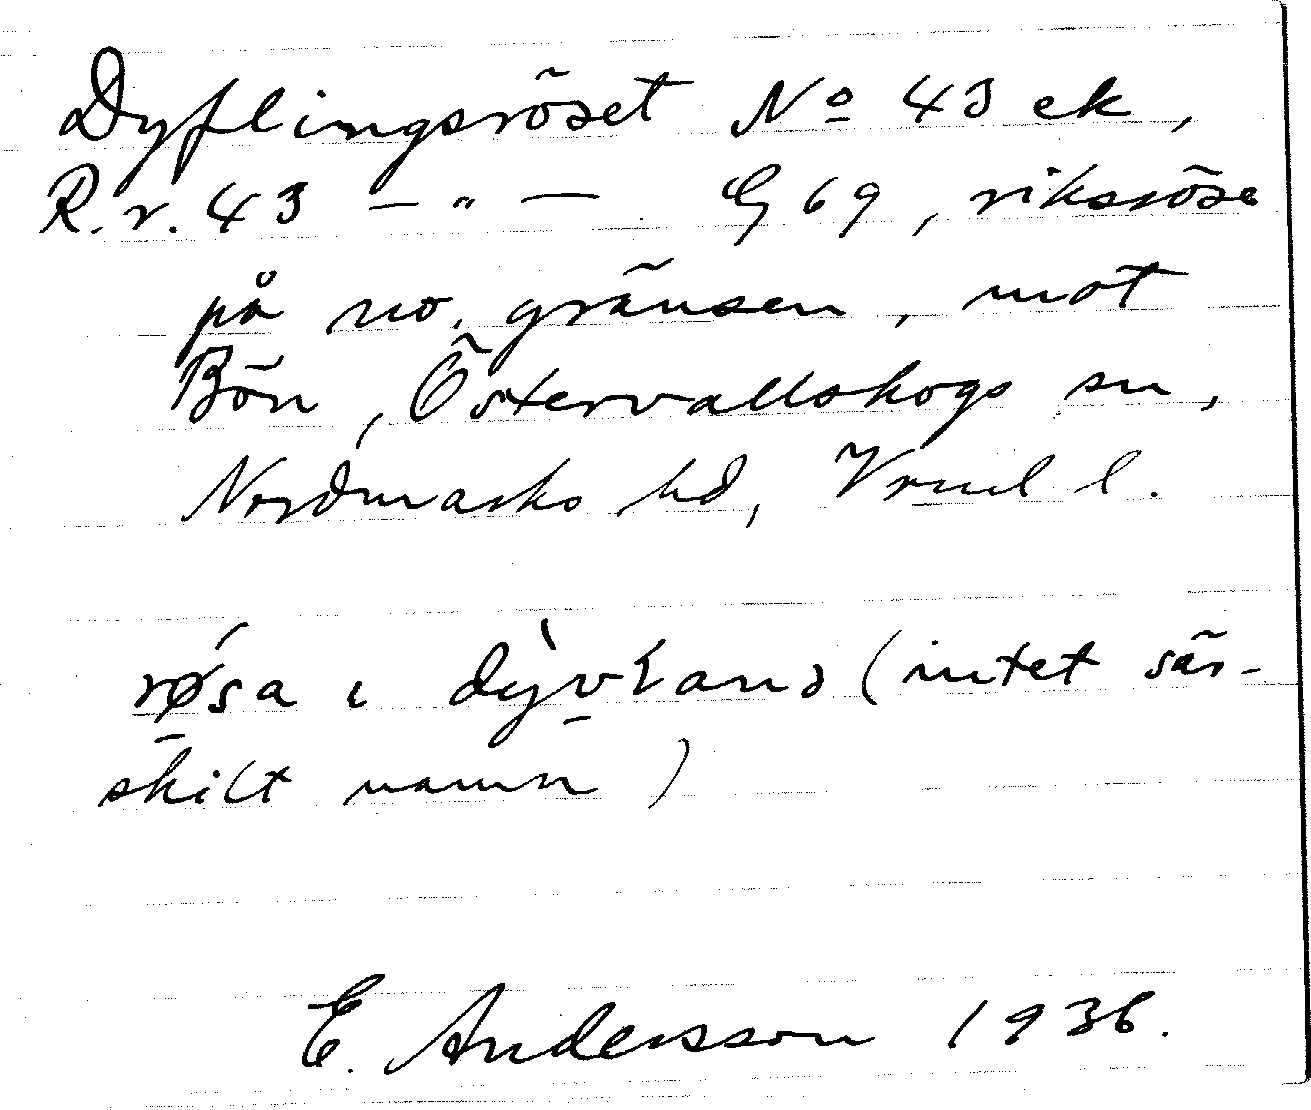 Dyflingsröset No 43 ek,
R.r. 43 — " — G 69, riksröse
på no. gränsen, mot
Bön, Östervallskogs sn,
Nordmarks hd, Vrml l.
rø´sa i
(intet sär-
skilt namn)
E. Andersson 1936.